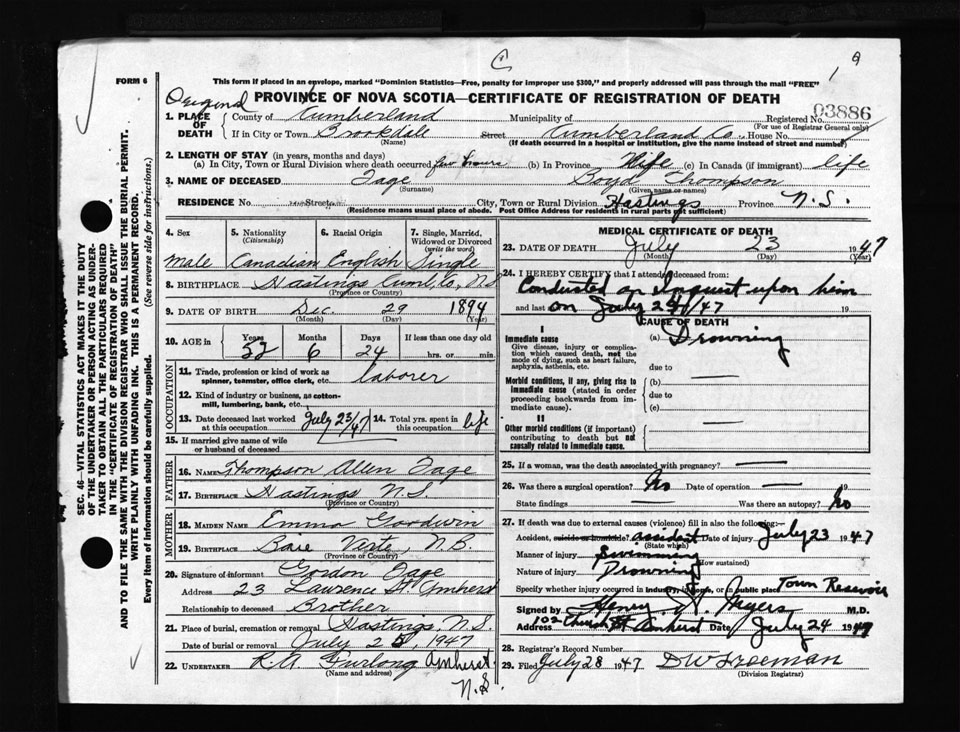 FORM 6
This form if placed in an envelope, marked "Dominion Statistics—Free, penalty for improper use $300," and properly addressed will pass through the mail "FREE"
Original
PROVINCE OF NOVA SCOTIA—CERTIFICATE OF REGISTRATION OF DEATH
03886
1. PLACE OF DEATH
County of Cumberland Municipality of Registered No.
(For use of Registrar General only)
If in City or Town Brookdale Street Cumberland Co. House No.
(Name) (If death occurred in a hospital or institution, give the name instead of street and number)
2. LENGTH OF STAY (in years, months and days)
(a) In City, Town or Rural Division where death occurred few hours (b) In Province life (c) In Canada (if immigrant) life
3. NAME OF DECEASED Tage Boyd Thompson
(Surname) (Given name or names)
RESIDENCE No. Street City, Town or Rural Division Hastings Province N.S.
(Residence means usual place of abode. Post Office Address for residents in rural parts not sufficient)
4. Sex 5. Nationality (Citizenship) 6. Racial Origin 7. Single, Married, Widowed or Divorced (write the word)
Male Canadian English Single
8. BIRTHPLACE Hastings Cumb. Co., N.S.
(Province or Country)
9. DATE OF BIRTH Dec. 29 1894
(Month) (Day) (Year)
10. AGE in Years Months Days If less than one day old
52 6 24 hrs. or min.
OCCUPATION
11. Trade, profession or kind of work as spinner, teamster, office clerk, etc. laborer
12. Kind of industry or business, as cotton-mill, lumbering, bank, etc.
13. Date deceased last worked at this occupation July 23/47 14. Total yrs. spent in this occupation life
15. If married give name of wife or husband of deceased
FATHER
16. NAME Thompson Allen Tage
17. BIRTHPLACE Hastings N.S.
(Province or Country)
MOTHER
18. MAIDEN NAME Emma Goodwin
19. BIRTHPLACE Baie Verte, N.B.
(Province or Country)
20. Signature of informant Gordon Tage
Address 23 Lawrence St. Amherst
Relationship to deceased Brother
21. Place of burial, cremation or removal Hastings N.S.
Date of burial or removal July 25, 1947
22. UNDERTAKER R.A. Furlong Amherst
(Name and address)
N.S.
MEDICAL CERTIFICATE OF DEATH
23. DATE OF DEATH July 23 1947
(Month) (Day) (Year)
24. I HEREBY CERTIFY that I attended deceased from:
Conducted an Inquest upon him
and last on July 24/47 19
CAUSE OF DEATH
Immediate cause (a) Drowning
Give disease, injury or complication which caused death, not the mode of dying, such as heart failure, asphyxia, asthenia, etc.
due to
Morbid conditions, if any, giving rise to immediate cause (stated in order proceeding backwards from immediate cause).
(b)
due to
(c)
II
Other morbid conditions (if important) contributing to death but not causally related to immediate cause.
25. If a woman, was the death associated with pregnancy?
26. Was there a surgical operation? No Date of operation
State findings Was there an autopsy? No
27. If death was due to external causes (violence) fill in also the following:—
Accident, suicide or homicide? accident Date of injury July 23 1947
(State which)
Manner of injury Swimming
(How sustained)
Nature of injury Drowning
Specify whether injury occurred in industry, in home, or in public place Town Reservoir
Signed by Henry Myers M.D.
Address 102 Church St Amherst Date July 24 1947
28. Registrar's Record Number
29. Filed July 28 1947 D W Freeman
(Division Registrar)
SEC. 46—VITAL STATISTICS ACT MAKES IT THE DUTY
OF THE UNDERTAKER OR PERSON ACTING AS UNDER-
TAKER TO OBTAIN ALL THE PARTICULARS REQUIRED
IN THE "CERTIFICATE OF REGISTRATION OF DEATH"
AND TO FILE THE SAME WITH THE DIVISION REGISTRAR WHO SHALL ISSUE THE BURIAL PERMIT.
WRITE PLAINLY WITH UNFADING INK. THIS IS A PERMANENT RECORD.
Every item of information should be carefully supplied. (See reverse side for instructions.)